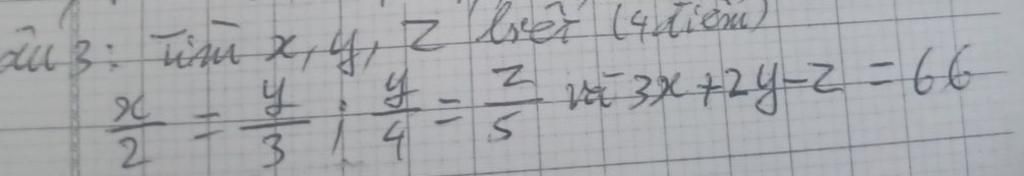 Câu 3: Tìm x, y, z biết (4 điểm)
x/2 = y/3 ; y/4 = z/5 và 3x + 2y - z = 66